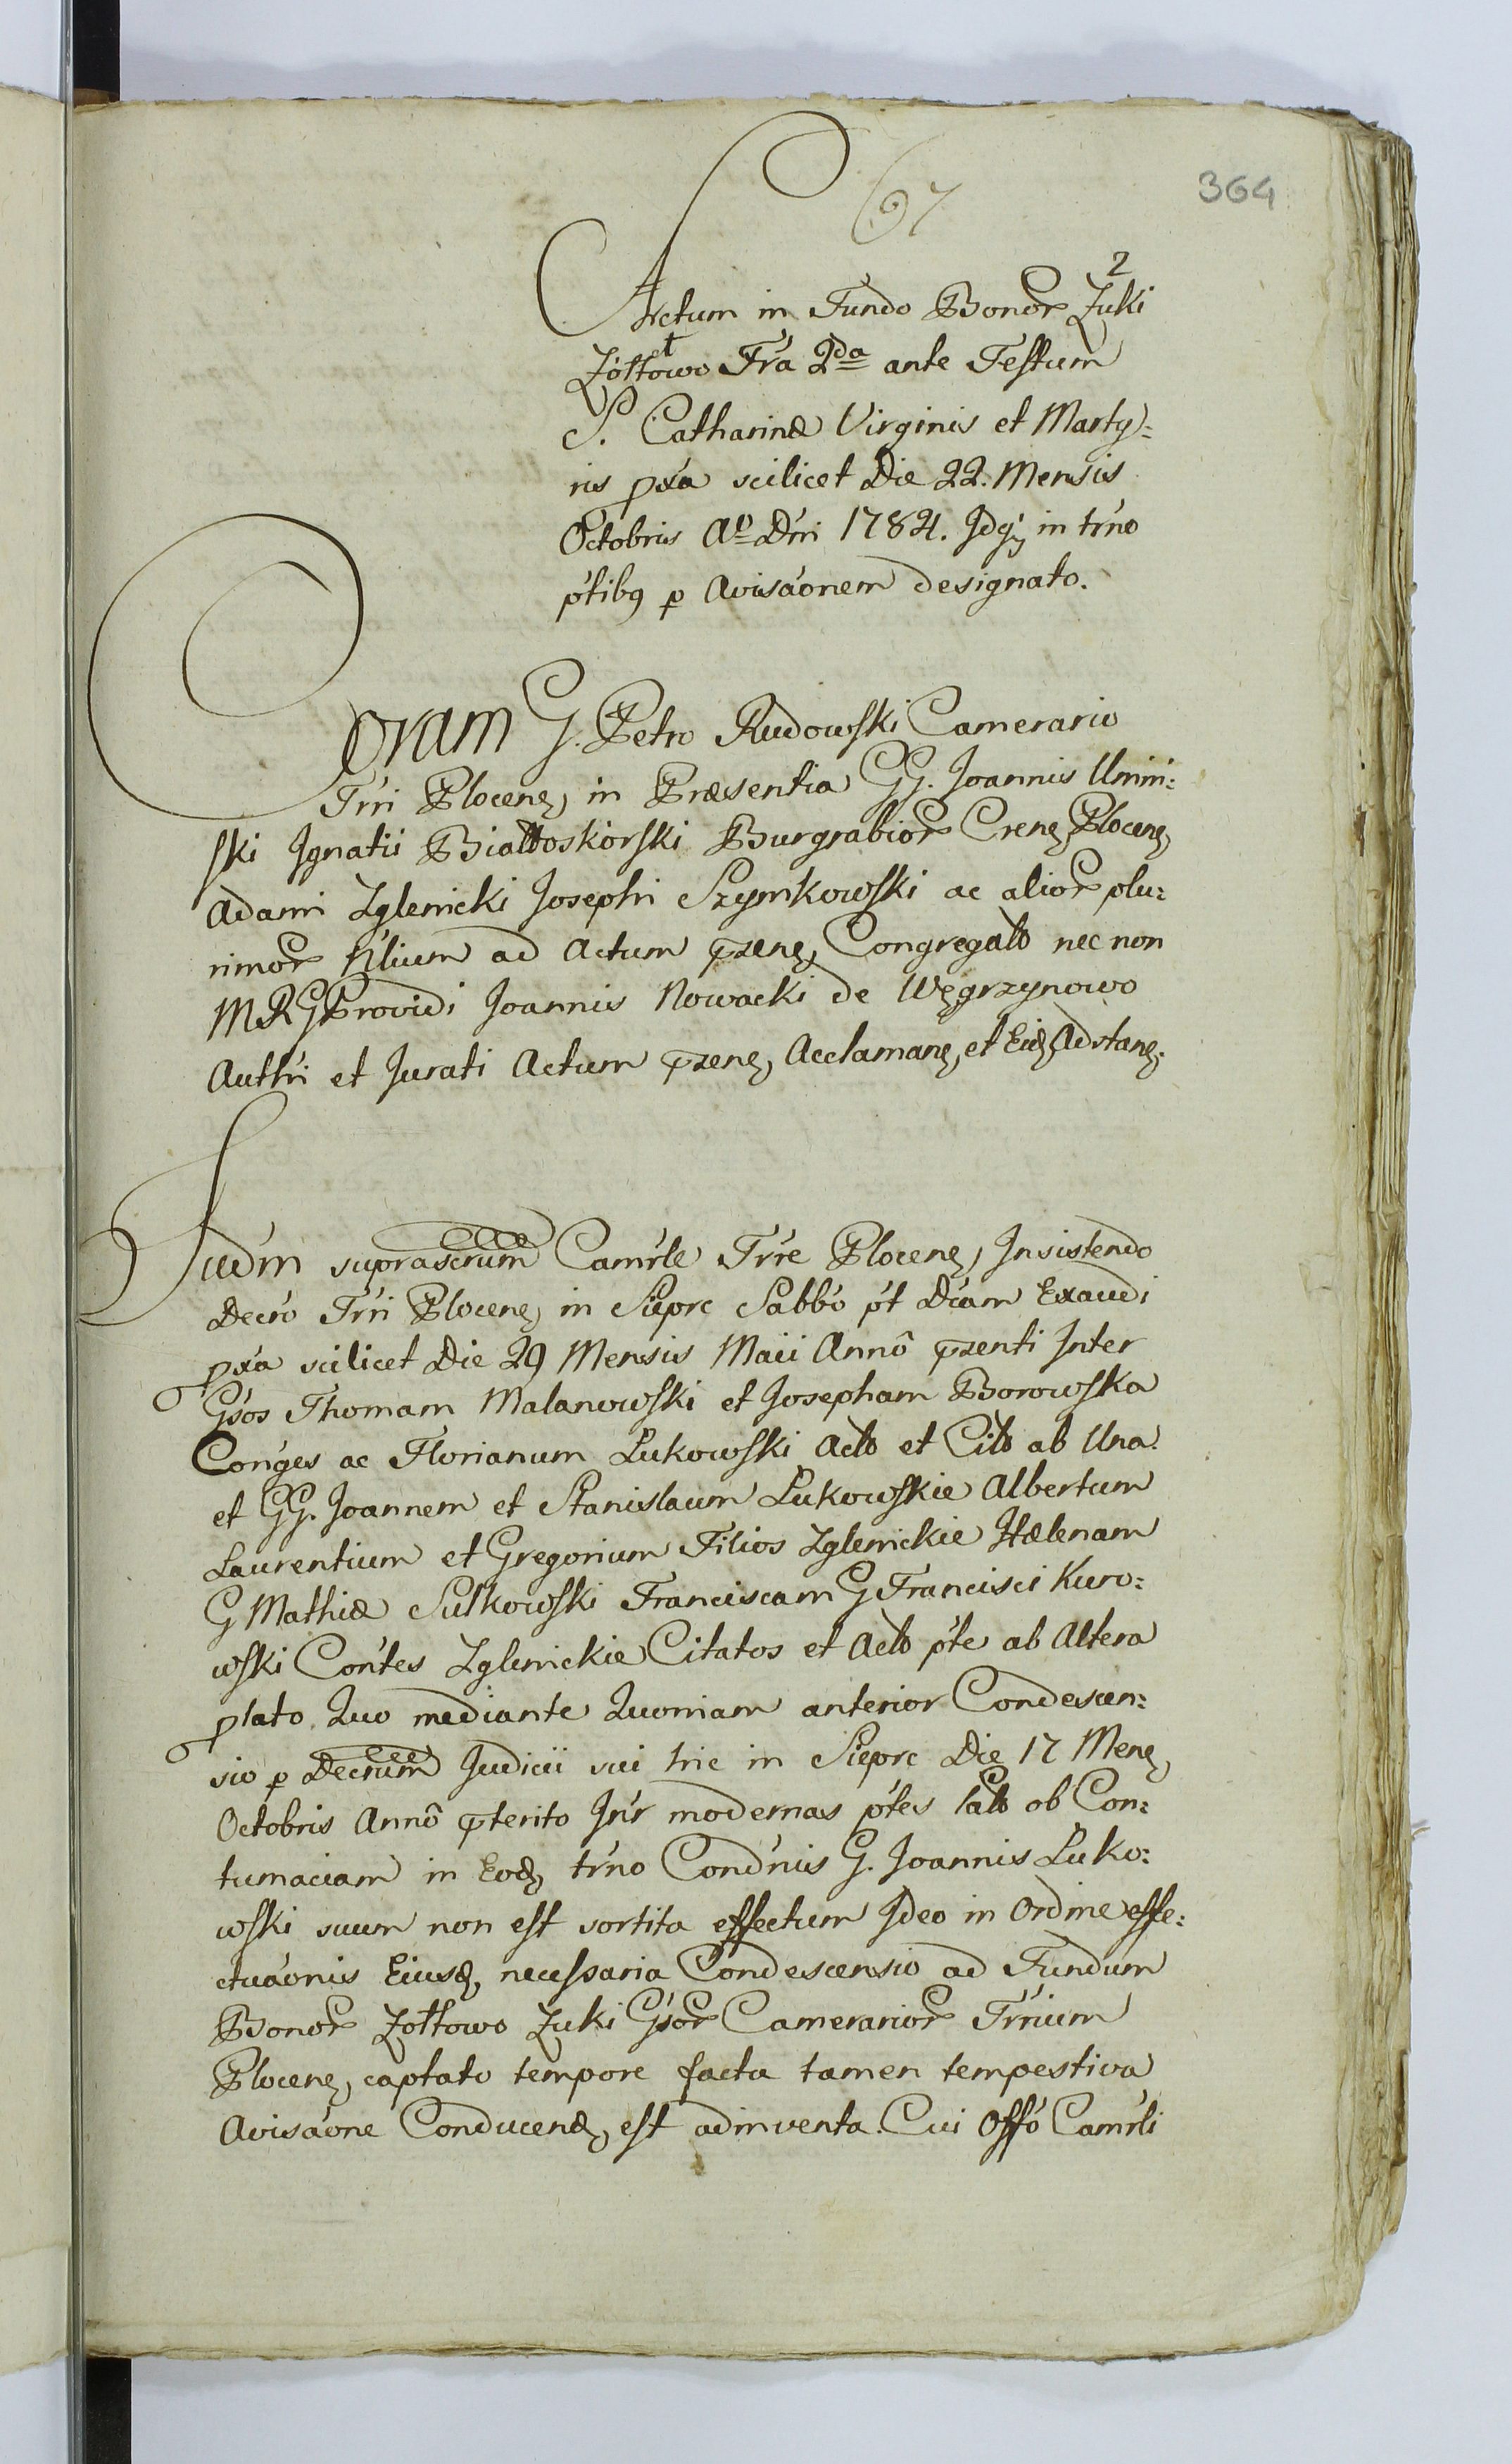 364
67
2
Actum in Fundo Bonor Żuki
Żółtowo Fra 2da ante Festum
S. Catharinæ Virginis et Marty:
ris pxa scilicet Die 22. Mensis
Octobris Ao Dni 1784. Jdq in trno
ptibq p Avisaonem designato.
Coram G. Petro Rudowski Camerario
Trri Plocenȩ, in Præsentia GG. Joannis Umin:
ski Ignatii Białłoskorski Burgrabior Crenȩ Plocenȩ
Adami Zglenicki Josephi Szymkowski ac alior plu:
rimor Nlium ad Actum pzenȩ, Congregato nec non
MRGProvidi Joannis Nowacki de Węgrzynowo
Authri et Jurati Actum pzenȩ, Acclamanȩ, et Eidȩ Adstanȩ.
Judm suprascrum Camrle Trre Plocenȩ, Insistendo
Decro Trri Plocenȩ in Sieprc Sabbo pt Dcam Exaudi
pxa scilicet Die 29 Mensis Maii Annô pzenti Inter
Gsos Thomam Malanowski et Josepham Borowska
Conges ac Florianum Lukowski Acto et Cito ab Una
et GG. Joannem et Stanislaum Lukowskie Albertum
Laurentium et Gregorium Filios Zglenickie Hælenam
G Mathiæ Sulkowski Franciscam G Francisci Kuro:
wski Contes Zglenickie Citatos et Acto pte ab Altera
plato. Quo mediante Quoniam anterior Condescen:
sio p Decrum Judicii sui hic in Sieprc Die 17 Menȩ
Octobris Annô pterito Inr modernas ptes lato ob Con:
tumaciam in Eodȩ trno Condnis G. Joannis Luko:
wski suum non est sortita effectum Ideo in Ordine effe:
ctuaonis Eiusdȩ, necessaria Condescensio ad Fundum
Bonor Żołtowo Żuki Gsor Camerarior Trrium
Plocenȩ, captato tempore facta tamen tempestiva
Avisaone Conducendȩ, est adinventa. Cui Offo Camrli